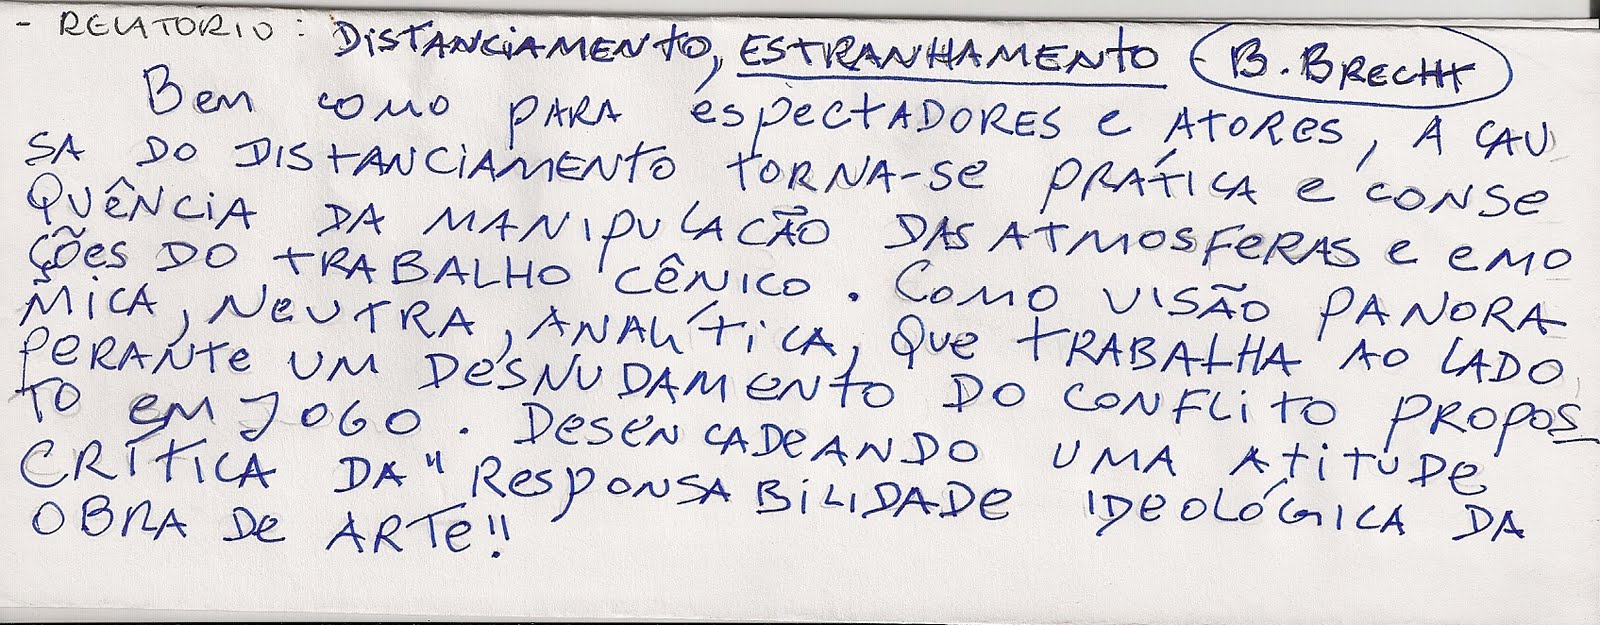 - RELATÓRIO: DISTANCIAMENTO, ESTRANHAMENTO - B. BRECHT
Bem como PARA espectADORES e ATORES, A CAU
SA DO DISTANCIAMENTO TORNA-SE PRÁTICA e CONSE
QUÊNCIA DA MANIPULAÇÃO DAS ATMOSFERAS e emo
ções DO TRABALHO CÊNICO. Como VISÃO PANORÂ
MICA, NEUTRA, ANALÍTICA, QUE TRABALHA AO LADO
PERANTE UM DESNUDAMENTO DO CONFLITO PROPOS
TO em JOGO. DESENCADEANDO UMA ATITUDE
CRÍTICA DA "RESPONSABILIDADE IDEOLÓGICA DA
OBRA DE ARTE!!